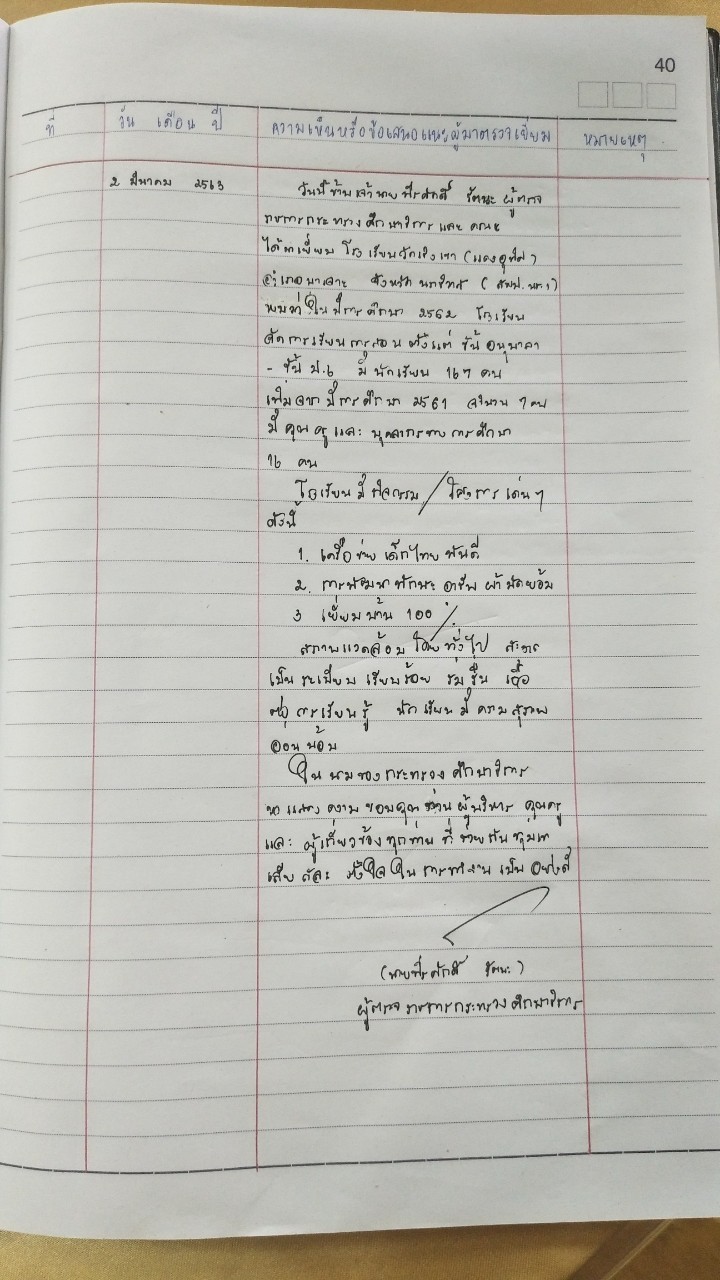 40
ที่ วัน เดือน ปี ความเห็นหรือข้อเสนอแนะผู้มาตรวจเยี่ยม หมายเหตุ
2 มีนาคม 2563 วันนี้ข้าพเจ้านายพีระศักดิ์ รัตนะ ผู้ตรวจ
ราชการกระทรวงศึกษาธิการ และ คณะ
ได้มาเยี่ยม โรงเรียนวัดเชิงเขา
อำเภอบาเจาะ จังหวัด นราธิวาส ( สพป.นธ.1)
พบว่า ในปีการศึกษา 2562 โรงเรียน
จัดการเรียนการสอน ตั้งแต่ ชั้นอนุบาล1
- ชั้น ป.6 มี นักเรียน 167 คน
เพิ่มจาก ปีการศึกษา 2561 จำนวน 7 คน
มี คุณครู และ บุคลากรทางการศึกษา
16 คน
โรงเรียน มี กิจกรรม / โครงการ เด่นๆ
ดังนี้
1. เครือข่าย เด็กไทย ฟันดี
2. การพัฒนาทักษะ อาชีพ ผ้ามัดย้อม
3 เยี่ยมบ้าน 100 %
สภาพแวดล้อม โดยทั่วไป สะอาด
เป็นระเบียบ เรียบร้อย ร่มรื่น เอื้อ
ต่อ การเรียนรู้ นักเรียน มี ความสุภาพ
อ่อนน้อม
ในนามของกระทรวงศึกษาธิการ
ขอแสดงความขอบคุณ ท่านผู้บริหาร คุณครู
และ ผู้เกี่ยวข้องทุกท่าน ที่ ช่วยกันทุ่มเท
เสียสละ ตั้งใจ ในการทำงาน เป็นอย่างดี
(นายพีระศักดิ์ รัตนะ)
ผู้ตรวจราชการกระทรวงศึกษาธิการ